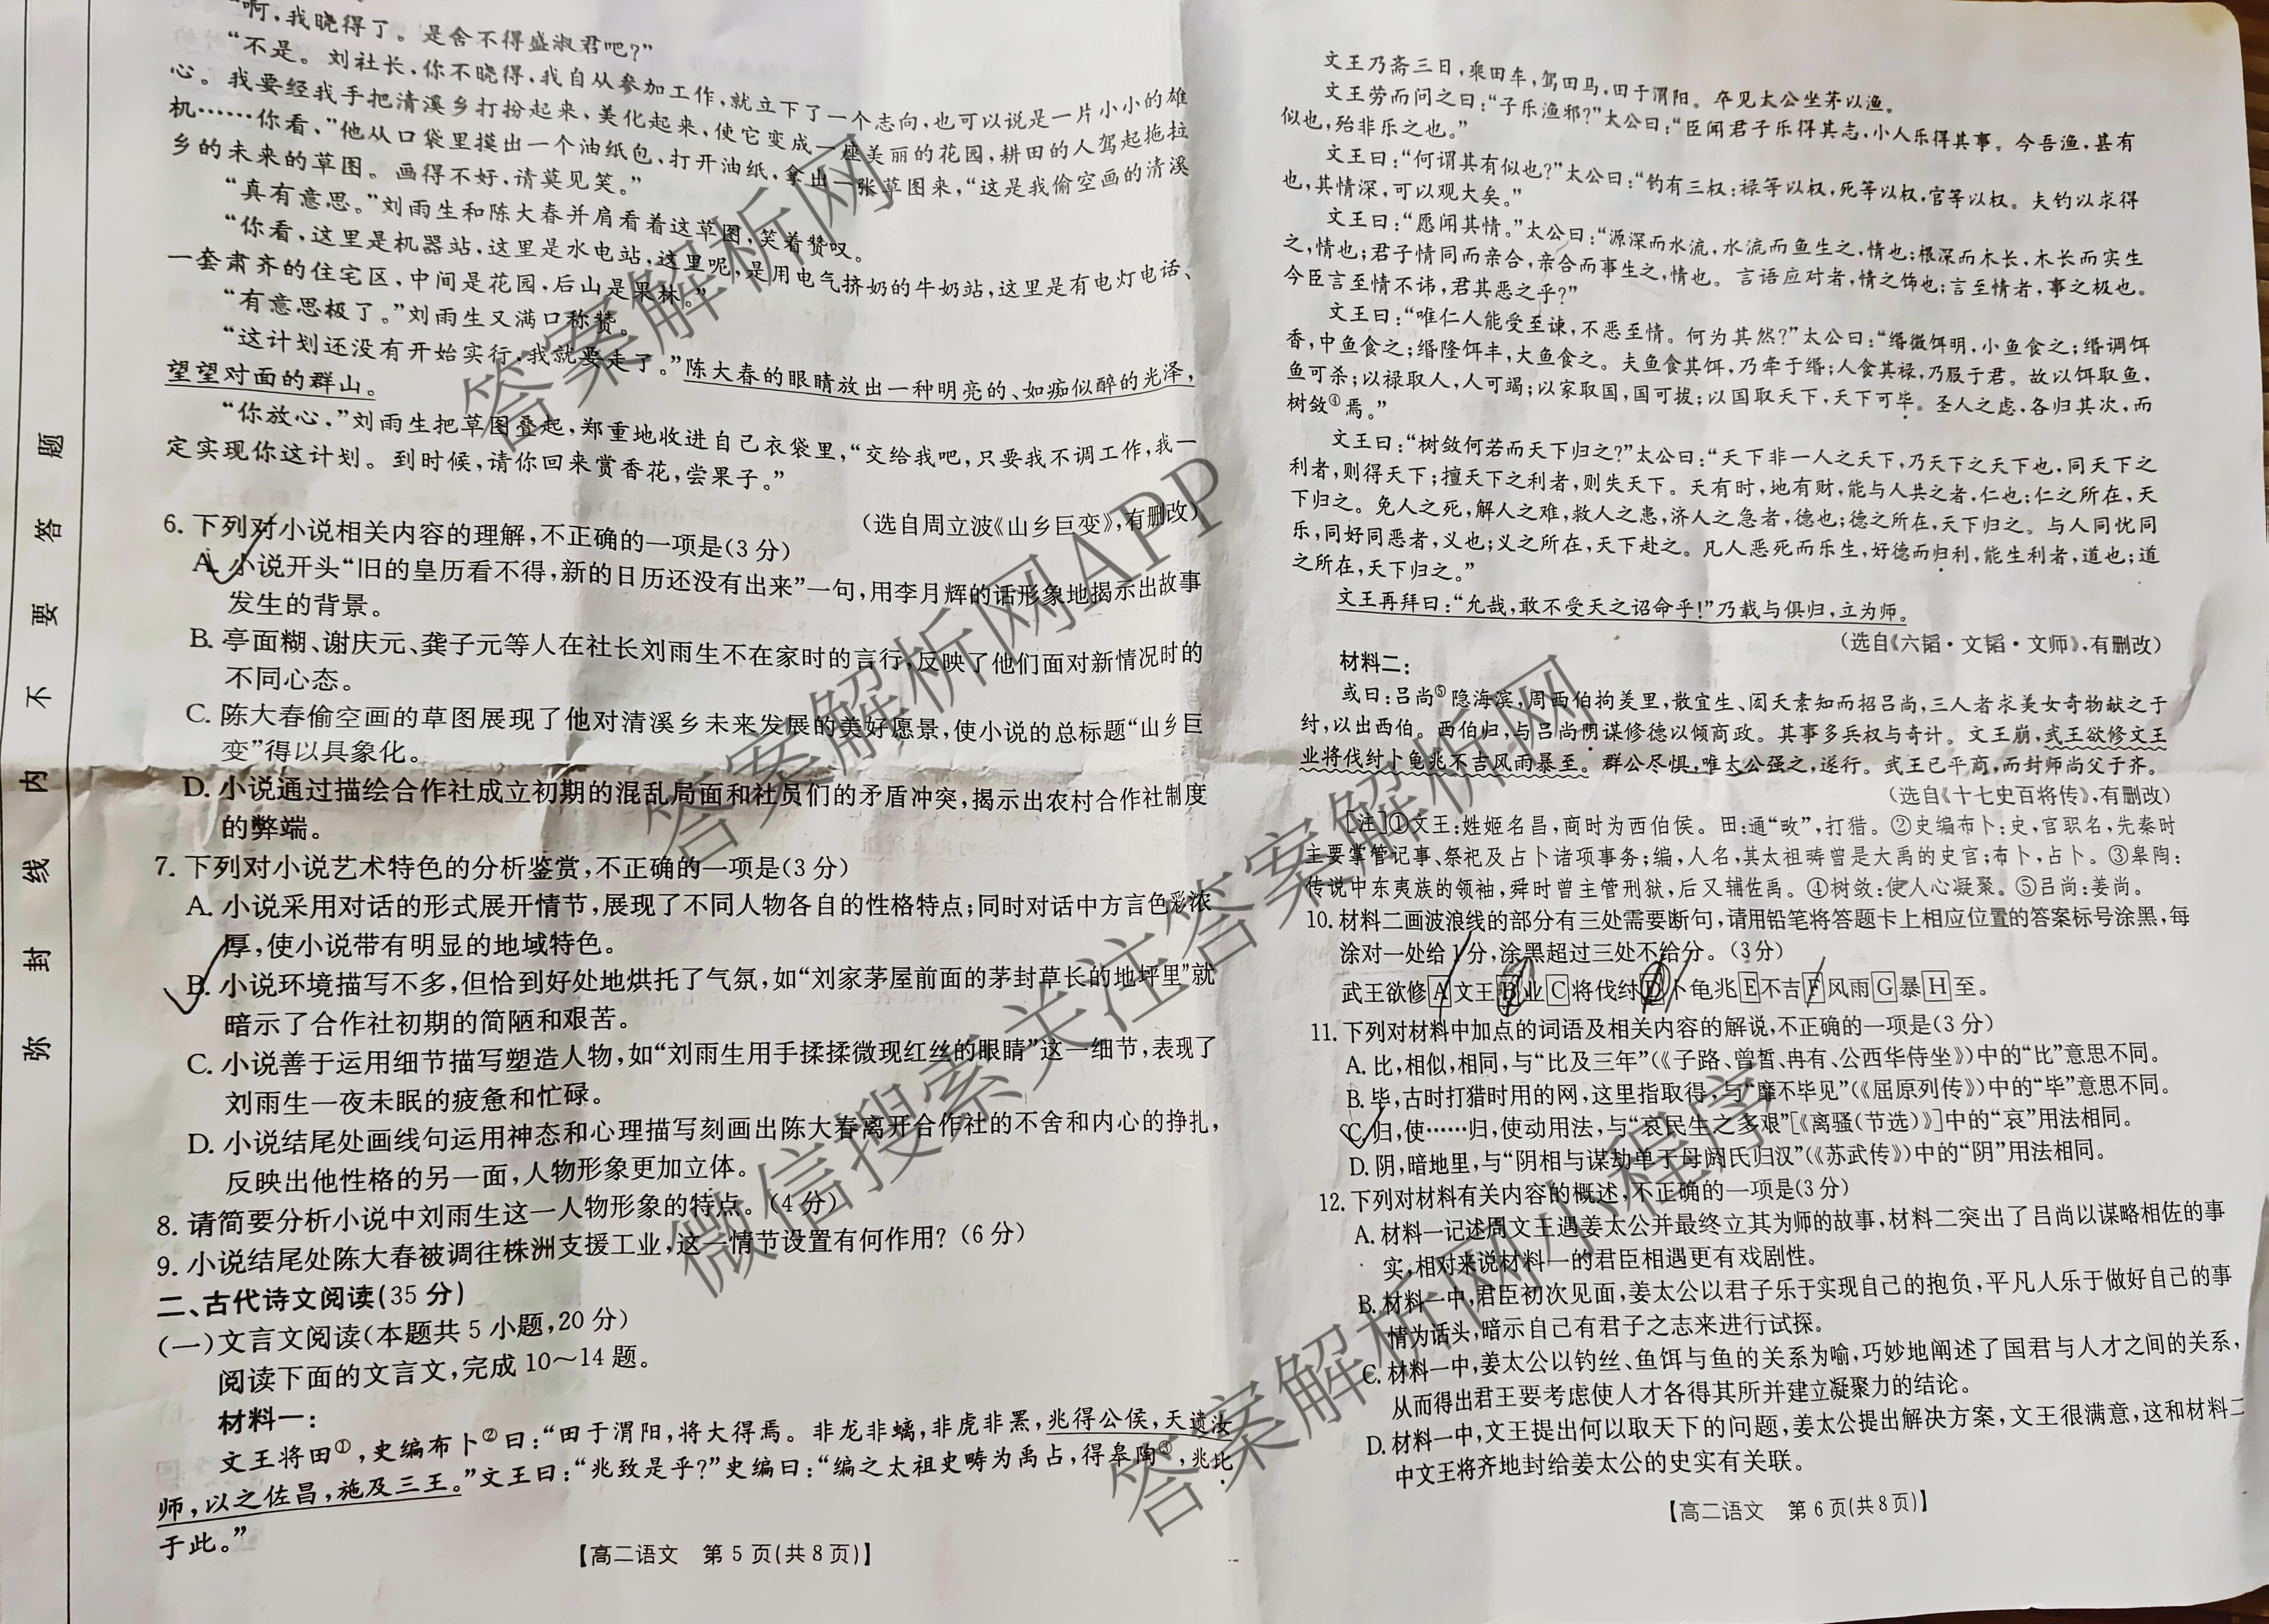 “啊,我晓得了。是舍不得盛淑君吧?”
“不是。刘社长,你不晓得,我自从参加工作,就立下了一个志向,也可以说是一片小小的雄
心。我要经我手把清溪乡打扮起来,美化起来,使它变成一座美丽的花园,耕田的人驾起拖拉
机……你看,”他从口袋里摸出一个油纸包,打开油纸,拿出一张草图来,“这是我偷空画的清溪
乡的未来的草图。画得不好,请莫见笑。”
“真有意思。”刘雨生和陈大春并肩看着这草图,笑着赞叹。
“你看,这里是机器站,这里是水电站,这里呢,是用电气挤奶的牛奶站,这里是有电灯电话、
一套肃齐的住宅区,中间是花园,后山是果林。”
“有意思极了。”刘雨生又满口称赞。
“这计划还没有开始实行,我就要走了。”陈大春的眼睛放出一种明亮的、如痴似醉的光泽,
望望对面的群山。
“你放心,”刘雨生把草图叠起,郑重地收进自己衣袋里,“交给我吧,只要我不调工作,我一
定实现你这计划。到时候,请你回来赏香花,尝果子。”
(选自周立波《山乡巨变》,有删改)
6. 下列对小说相关内容的理解,不正确的一项是(3分)
A. 小说开头“旧的皇历看不得,新的日历还没有出来”一句,用李月辉的话形象地揭示出故事
发生的背景。
B. 亭面糊、谢庆元、龚子元等人在社长刘雨生不在家时的言行,反映了他们面对新情况时的
不同心态。
C. 陈大春偷空画的草图展现了他对清溪乡未来发展的美好愿景,使小说的总标题“山乡巨
变”得以具象化。
D. 小说通过描绘合作社成立初期的混乱局面和社员们的矛盾冲突,揭示出农村合作社制度
的弊端。
7. 下列对小说艺术特色的分析鉴赏,不正确的一项是(3分)
A. 小说采用对话的形式展开情节,展现了不同人物各自的性格特点;同时对话中方言色彩浓
厚,使小说带有明显的地域特色。
B. 小说环境描写不多,但恰到好处地烘托了气氛,如“刘家茅屋前面的茅封草长的地坪里”就
暗示了合作社初期的简陋和艰苦。
C. 小说善于运用细节描写塑造人物,如“刘雨生用手揉揉微现红丝的眼睛”这一细节,表现了
刘雨生一夜未眠的疲惫和忙碌。
D. 小说结尾处画线句运用神态和心理描写刻画出陈大春离开合作社的不舍和内心的挣扎,
反映出他性格的另一面,人物形象更加立体。
8. 请简要分析小说中刘雨生这一人物形象的特点。(4分)
9. 小说结尾处陈大春被调往株洲支援工业,这一情节设置有何作用?(6分)
二、古代诗文阅读(35分)
(一)文言文阅读(本题共5小题,20分)
阅读下面的文言文,完成10～14题。
材料一:
文王将田①,史编布卜②曰:“田于渭阳,将大得焉。非龙非螭,非虎非罴,兆得公侯,天遗汝
师,以之佐昌,施及三王。”文王曰:“兆致是乎?”史编曰:“编之太祖史畴为禹占,得皋陶③,兆比
于此。”
【高二语文 第5页(共8页)】
文王乃斋三日,乘田车,驾田马,田于渭阳。卒见太公坐茅以渔。
文王劳而问之曰:“子乐渔邪?”太公曰:“臣闻君子乐得其志,小人乐得其事。今吾渔,甚有
似也,殆非乐之也。”
文王曰:“何谓其有似也?”太公曰:“钓有三权:禄等以权,死等以权,官等以权。夫钓以求得
也,其情深,可以观大矣。”
文王曰:“愿闻其情。”太公曰:“源深而水流,水流而鱼生之,情也;根深而木长,木长而实生
之,情也;君子情同而亲合,亲合而事生之,情也。言语应对者,情之饰也;言至情者,事之极也。
今臣言至情不讳,君其恶之乎?”
文王曰:“唯仁人能受至谏,不恶至情。何为其然?”太公曰:“缗微饵明,小鱼食之;缗调饵
香,中鱼食之;缗隆饵丰,大鱼食之。夫鱼食其饵,乃牵于缗;人食其禄,乃服于君。故以饵取鱼,
鱼可杀;以禄取人,人可竭;以家取国,国可拔;以国取天下,天下可毕。圣人之虑,各归其次,而
树敛④焉。”
文王曰:“树敛何若而天下归之?”太公曰:“天下非一人之天下,乃天下之天下也,同天下之
利者,则得天下;擅天下之利者,则失天下。天有时,地有财,能与人共之者,仁也;仁之所在,天
下归之。免人之死,解人之难,救人之患,济人之急者,德也;德之所在,天下归之。与人同忧同
乐,同好同恶者,义也;义之所在,天下赴之。凡人恶死而乐生,好德而归利,能生利者,道也;道
之所在,天下归之。”
文王再拜曰:“允哉,敢不受天之诏命乎!”乃载与俱归,立为师。
(选自《六韬·文韬·文师》,有删改)
材料二:
或曰:吕尚⑤隐海滨,周西伯拘羑里,散宜生、闳夭素知而招吕尚,三人者求美女奇物献之于
纣,以出西伯。西伯归,与吕尚阴谋修德以倾商政。其事多兵权与奇计。文王崩,武王欲修文王
业将伐纣卜龟兆不吉风雨暴至。群公尽惧,唯太公强之,遂行。武王已平商,而封师尚父于齐。
(选自《十七史百将传》,有删改)
[注]①文王:姓姬名昌,商时为西伯侯。田:通“畋”,打猎。②史编布卜:史,官职名,先秦时
主要掌管记事、祭祀及占卜诸项事务;编,人名,其太祖畴曾是大禹的史官;布卜,占卜。③皋陶:
传说中东夷族的领袖,舜时曾主管刑狱,后又辅佐禹。④树敛:使人心凝聚。⑤吕尚:姜尚。
10. 材料二画波浪线的部分有三处需要断句,请用铅笔将答题卡上相应位置的答案标号涂黑,每
涂对一处给1分,涂黑超过三处不给分。(3分)
武王欲修A文王B业C将伐纣D卜龟兆E不吉F风雨G暴H至。
11. 下列对材料中加点的词语及相关内容的解说,不正确的一项是(3分)
A. 比,相似,相同,与“比及三年”(《子路、曾皙、冉有、公西华侍坐》)中的“比”意思不同。
B. 毕,古时打猎时用的网,这里指取得,与“靡不毕见”(《屈原列传》)中的“毕”意思不同。
C. 归,使……归,使动用法,与“哀民生之多艰”[《离骚(节选)》]中的“哀”用法相同。
D. 阴,暗地里,与“阴相与谋劫单于母阏氏归汉”(《苏武传》)中的“阴”用法相同。
12. 下列对材料有关内容的概述,不正确的一项是(3分)
A. 材料一记述周文王遇姜太公并最终立其为师的故事,材料二突出了吕尚以谋略相佐的事
实,相对来说材料一的君臣相遇更有戏剧性。
B. 材料一中,君臣初次见面,姜太公以君子乐于实现自己的抱负,平凡人乐于做好自己的事
情为话头,暗示自己有君子之志来进行试探。
C. 材料一中,姜太公以钓丝、鱼饵与鱼的关系为喻,巧妙地阐述了国君与人才之间的关系,
从而得出君王要考虑使人才各得其所并建立凝聚力的结论。
D. 材料一中,文王提出何以取天下的问题,姜太公提出解决方案,文王很满意,这和材料二
中文王将齐地封给姜太公的史实有关联。
【高二语文 第6页(共8页)】
弥封线内不要答题
答案解析网
微信搜索关注答案解析网
答案解析网APP
答案解析网小程序